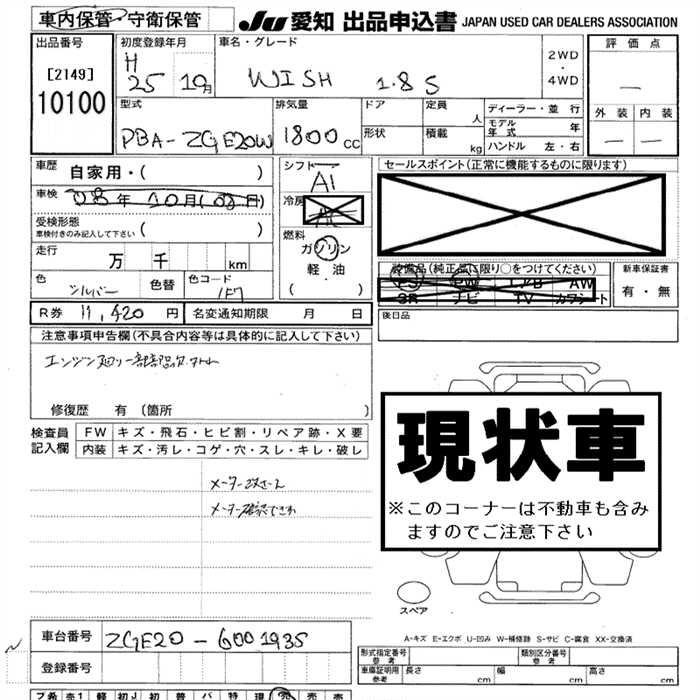 車内保管・守衛保管
JU 愛知 出品申込書 JAPAN USED CAR DEALERS ASSOCIATION
出品番号 初度登録年月 車名・グレード 評価点
[2149] H 25 10月 WISH 1.8S 2WD・4WD
10100
外装 内装
型式 排気量 ドア 定員 人 ディーラー・並行
PBA-ZGE20W 1800cc 形状 積載 kg モデル年式 年
ハンドル 左・右
車歴 自家用・( ) シフト セールスポイント(正常に機能するものに限ります)
AI
車検 年10月( 日) 冷房
受検形態 車検付きのみ記入して下さい ( )
燃料
走行 万 千 km ガソリン
軽油
( )
装備品(純正品に限り○をつけてください) 新車保証書
PS PW エアB AW
SR ナビ TV カワシート
有・無
色 シルバー 色替 色コード 1F7
R券 11,420円 名変通知期限 月 日 後日品
注意事項申告欄(不具合内容等は具体的に記入して下さい)
エンジン
修復歴 有(箇所 )
現状車
※このコーナーは不動車も含みますのでご注意下さい
検査員記入欄 FW キズ・飛石・ヒビ割・リペア跡・X要
内装 キズ・汚レ・コゲ・穴・スレ・キレ・破レ
メーター
メーター
スペア
A-キズ E-エクボ U-凹み W-補修跡 S-サビ C-腐食 XX-交換済
車台番号 ZGE20-6001935
登録番号
形式指定番号 参考 類別区分番号 参考
車庫証明用 参考 長さ cm 幅 cm 高さ cm